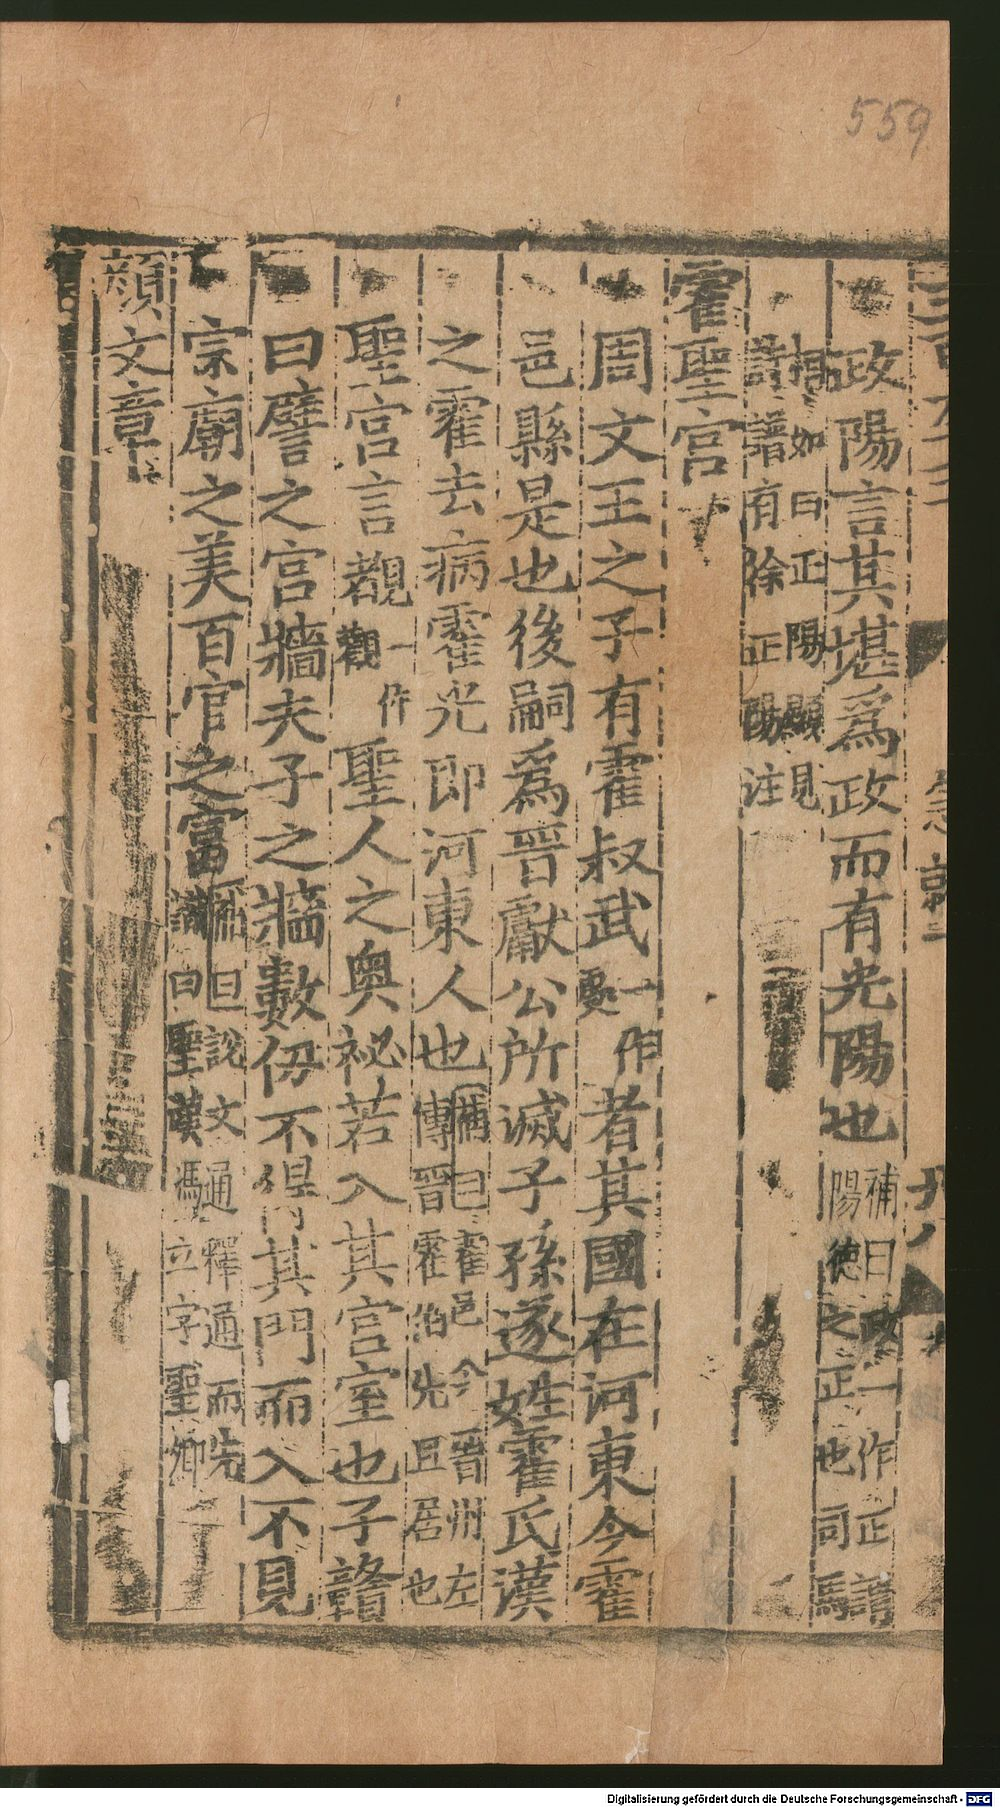 559
政陽言其堪爲政而有光陽也補曰政一作正譜
陽德之正也司馬
相如曰正陽顯見
黄譜有徐正陽注
霍聖宮
周文王之子有霍叔武一作
處者其國在河東今霍
邑縣是也後嗣爲晉獻公所滅子孫遂姓霍氏漢
之霍去病霍光即河東人也補曰霍邑今晉州左
傳晉霍伯先且居也
聖宮言覩一作
觀聖人之奥祕若入其宮室也子贛
曰譬之宮牆夫子之牆數仞不得其門而入不見
宗廟之美百官之富補曰說文通釋通而先
識曰聖漢馮立字聖卿
顔文章
急就二
廿八
Digitalisierung gefördert durch die Deutsche Forschungsgemeinschaft - DFG